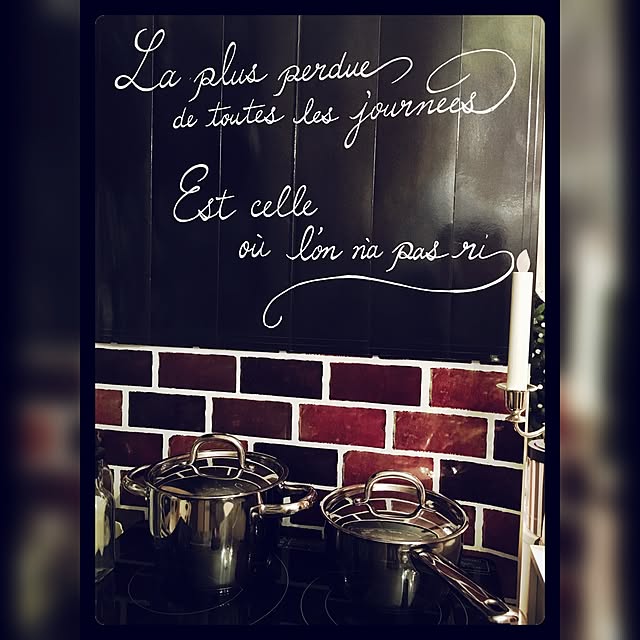 La plus perdue
de toutes les journées
Est celle
où l'on n'a pas ri